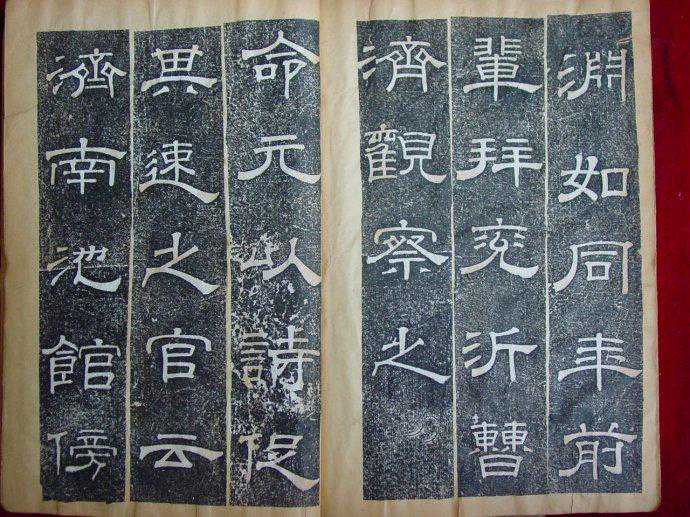 淵如同年前
輩拜兗沂曹
濟觀察之
命元以詩促
其速之官云
濟南池館傍